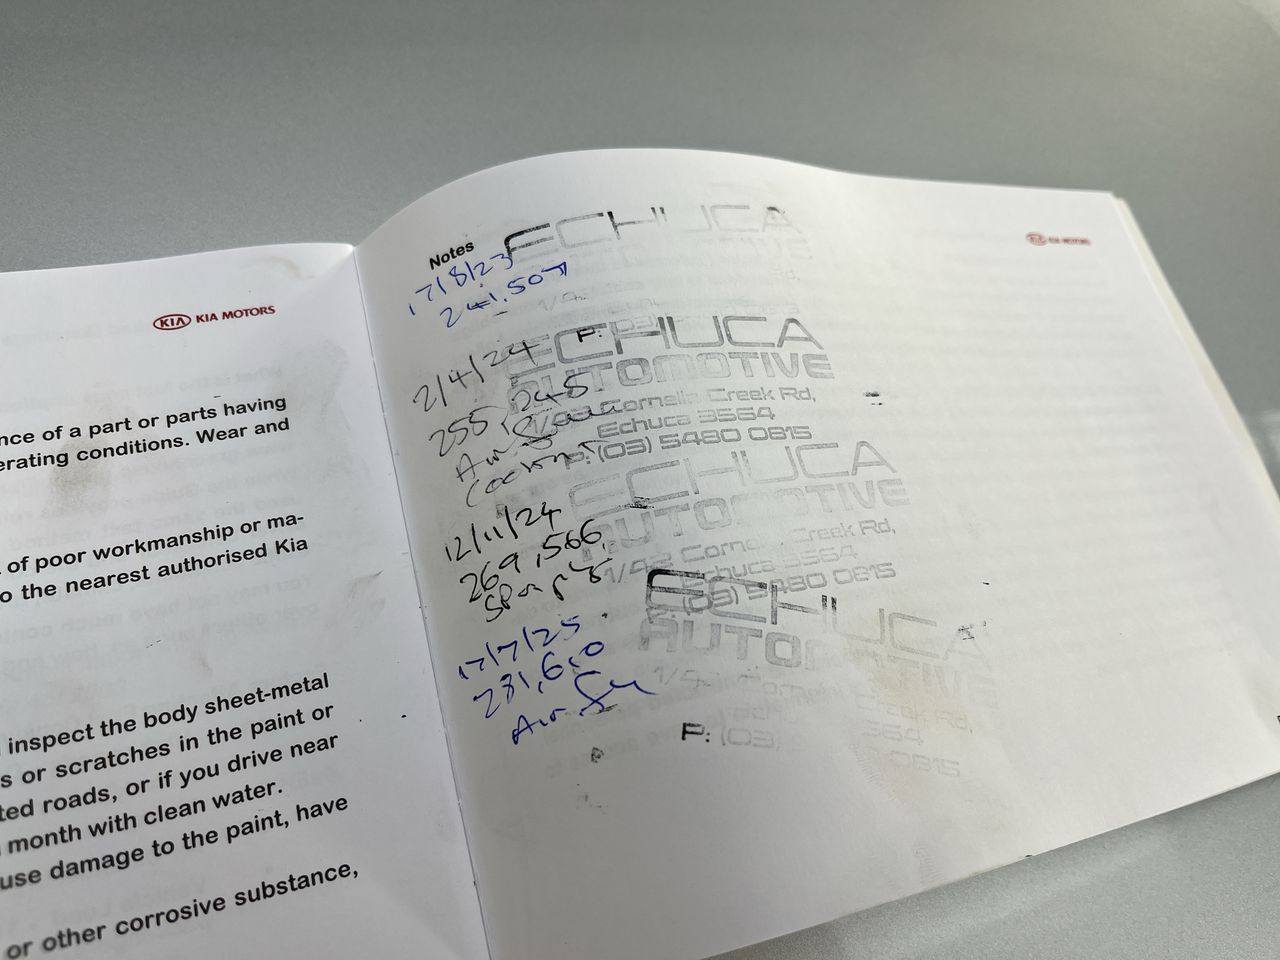 KIA KIA MOTORS
nce of a part or parts having
erating conditions. Wear and
of poor workmanship or ma-
o the nearest authorised Kia
inspect the body sheet-metal
s or scratches in the paint or
ted roads, or if you drive near
month with clean water.
use damage to the paint, have
or other corrosive substance,
KIA KIA MOTORS
Notes
ECHUCA
17/8/23
241,507
P:
ECHUCA
AUTOMOTIVE
Cornelia Creek Rd,
Echuca 3564
P: (03) 5480 0815
2/4/24
255,245
ECHUCA
AUTOMOTIVE
1/42 Cornelia Creek Rd,
Echuca 3564
P: (03) 5480 0815
12/11/24
269,566
ECHUCA
AUTOMOTIVE
Creek Rd,
3564
P: (03) 0815
17/7/25